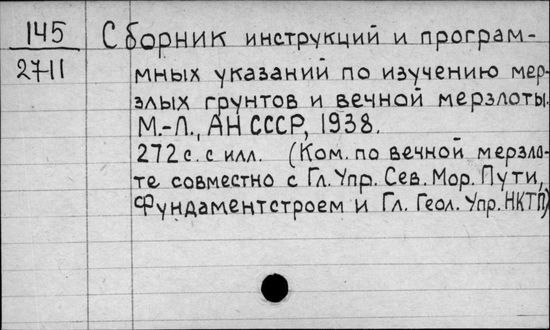 145
2711
Сборник инструкций и програм-
мных указаний по изучению мер-
злых грунтов и вечной мерзлоты.
М.-Л., АН СССР, 1938.
272 с. с илл. (Ком. по вечной мерзло-
те совместно с Гл. Упр. Сев. Мор. Пути,
Фундаментстроем и Гл. Геол. Упр. НКТП)